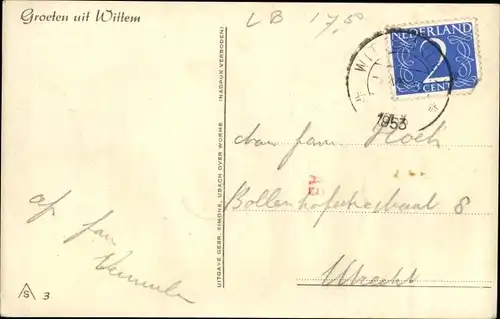 Groeten uit Wittem
LB 17,50
NEDERLAND
2
CENT
WIT
1953
(NADRUK VERBODEN)
UITGAVE GEBR. SIMONS, UBACH OVER WORMS
Aan fam Hoek
Bollenhofschestraat 8
Utrecht
af fam
Vermeulen
AS 3